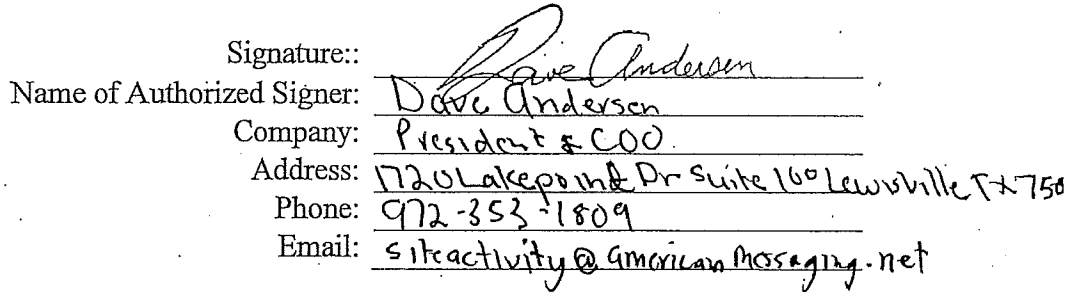 Signature:: Dave Andersen
Name of Authorized Signer: Dave Andersen
Company: President & COO
Address: 1720 Lakepoint Dr Suite 100 Lewisville TX 750
Phone: 972-353-1809
Email: siteactivity@americanmessaging.net